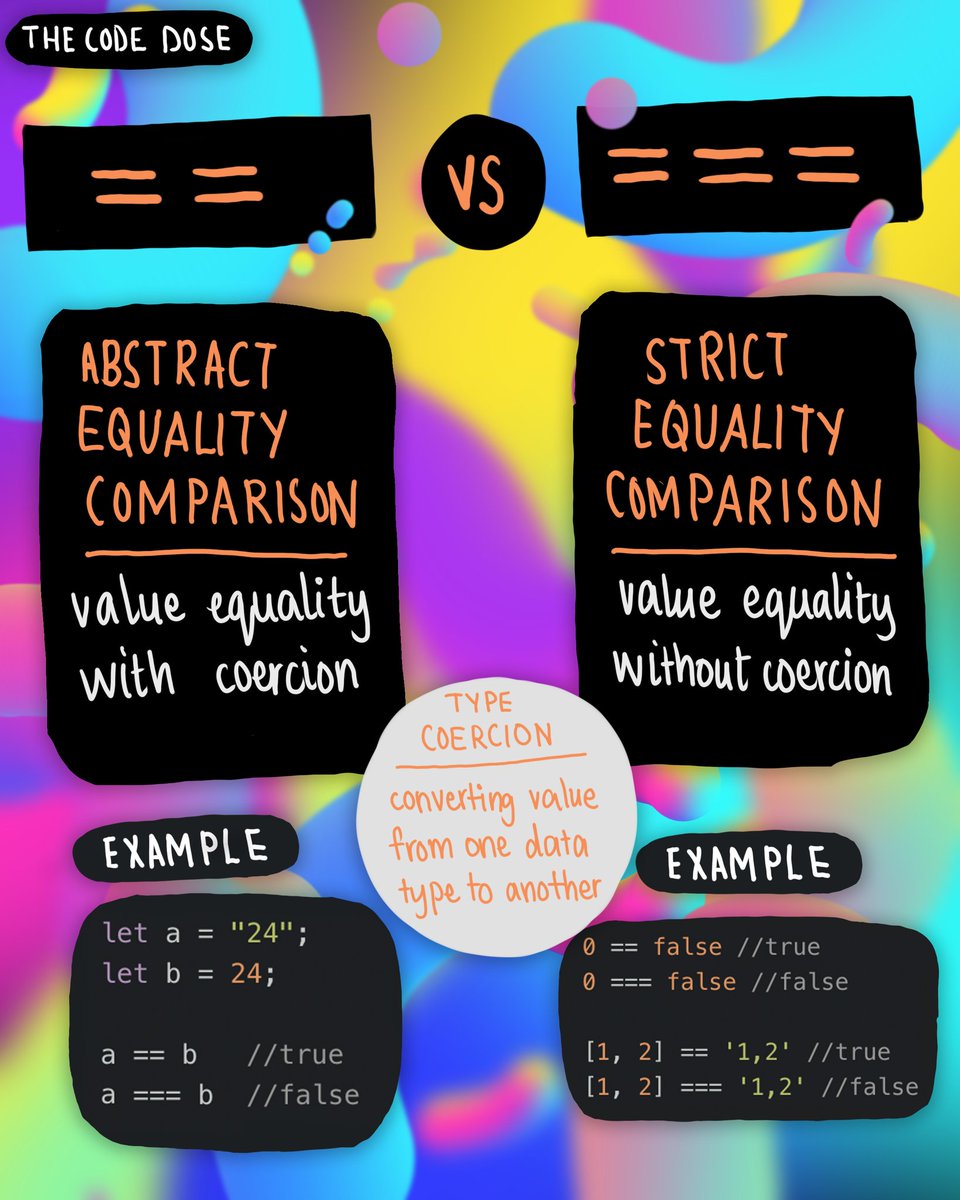 THE CODE DOSE
==
VS
===
ABSTRACT
EQUALITY
COMPARISON
value equality
with coercion
STRICT
EQUALITY
COMPARISON
value equality
without coercion
TYPE
COERCION
converting value
from one data
type to another
EXAMPLE
let a = "24";
let b = 24;
a == b //true
a === b //false
EXAMPLE
0 == false //true
0 === false //false
[1, 2] == '1,2' //true
[1, 2] === '1,2' //false